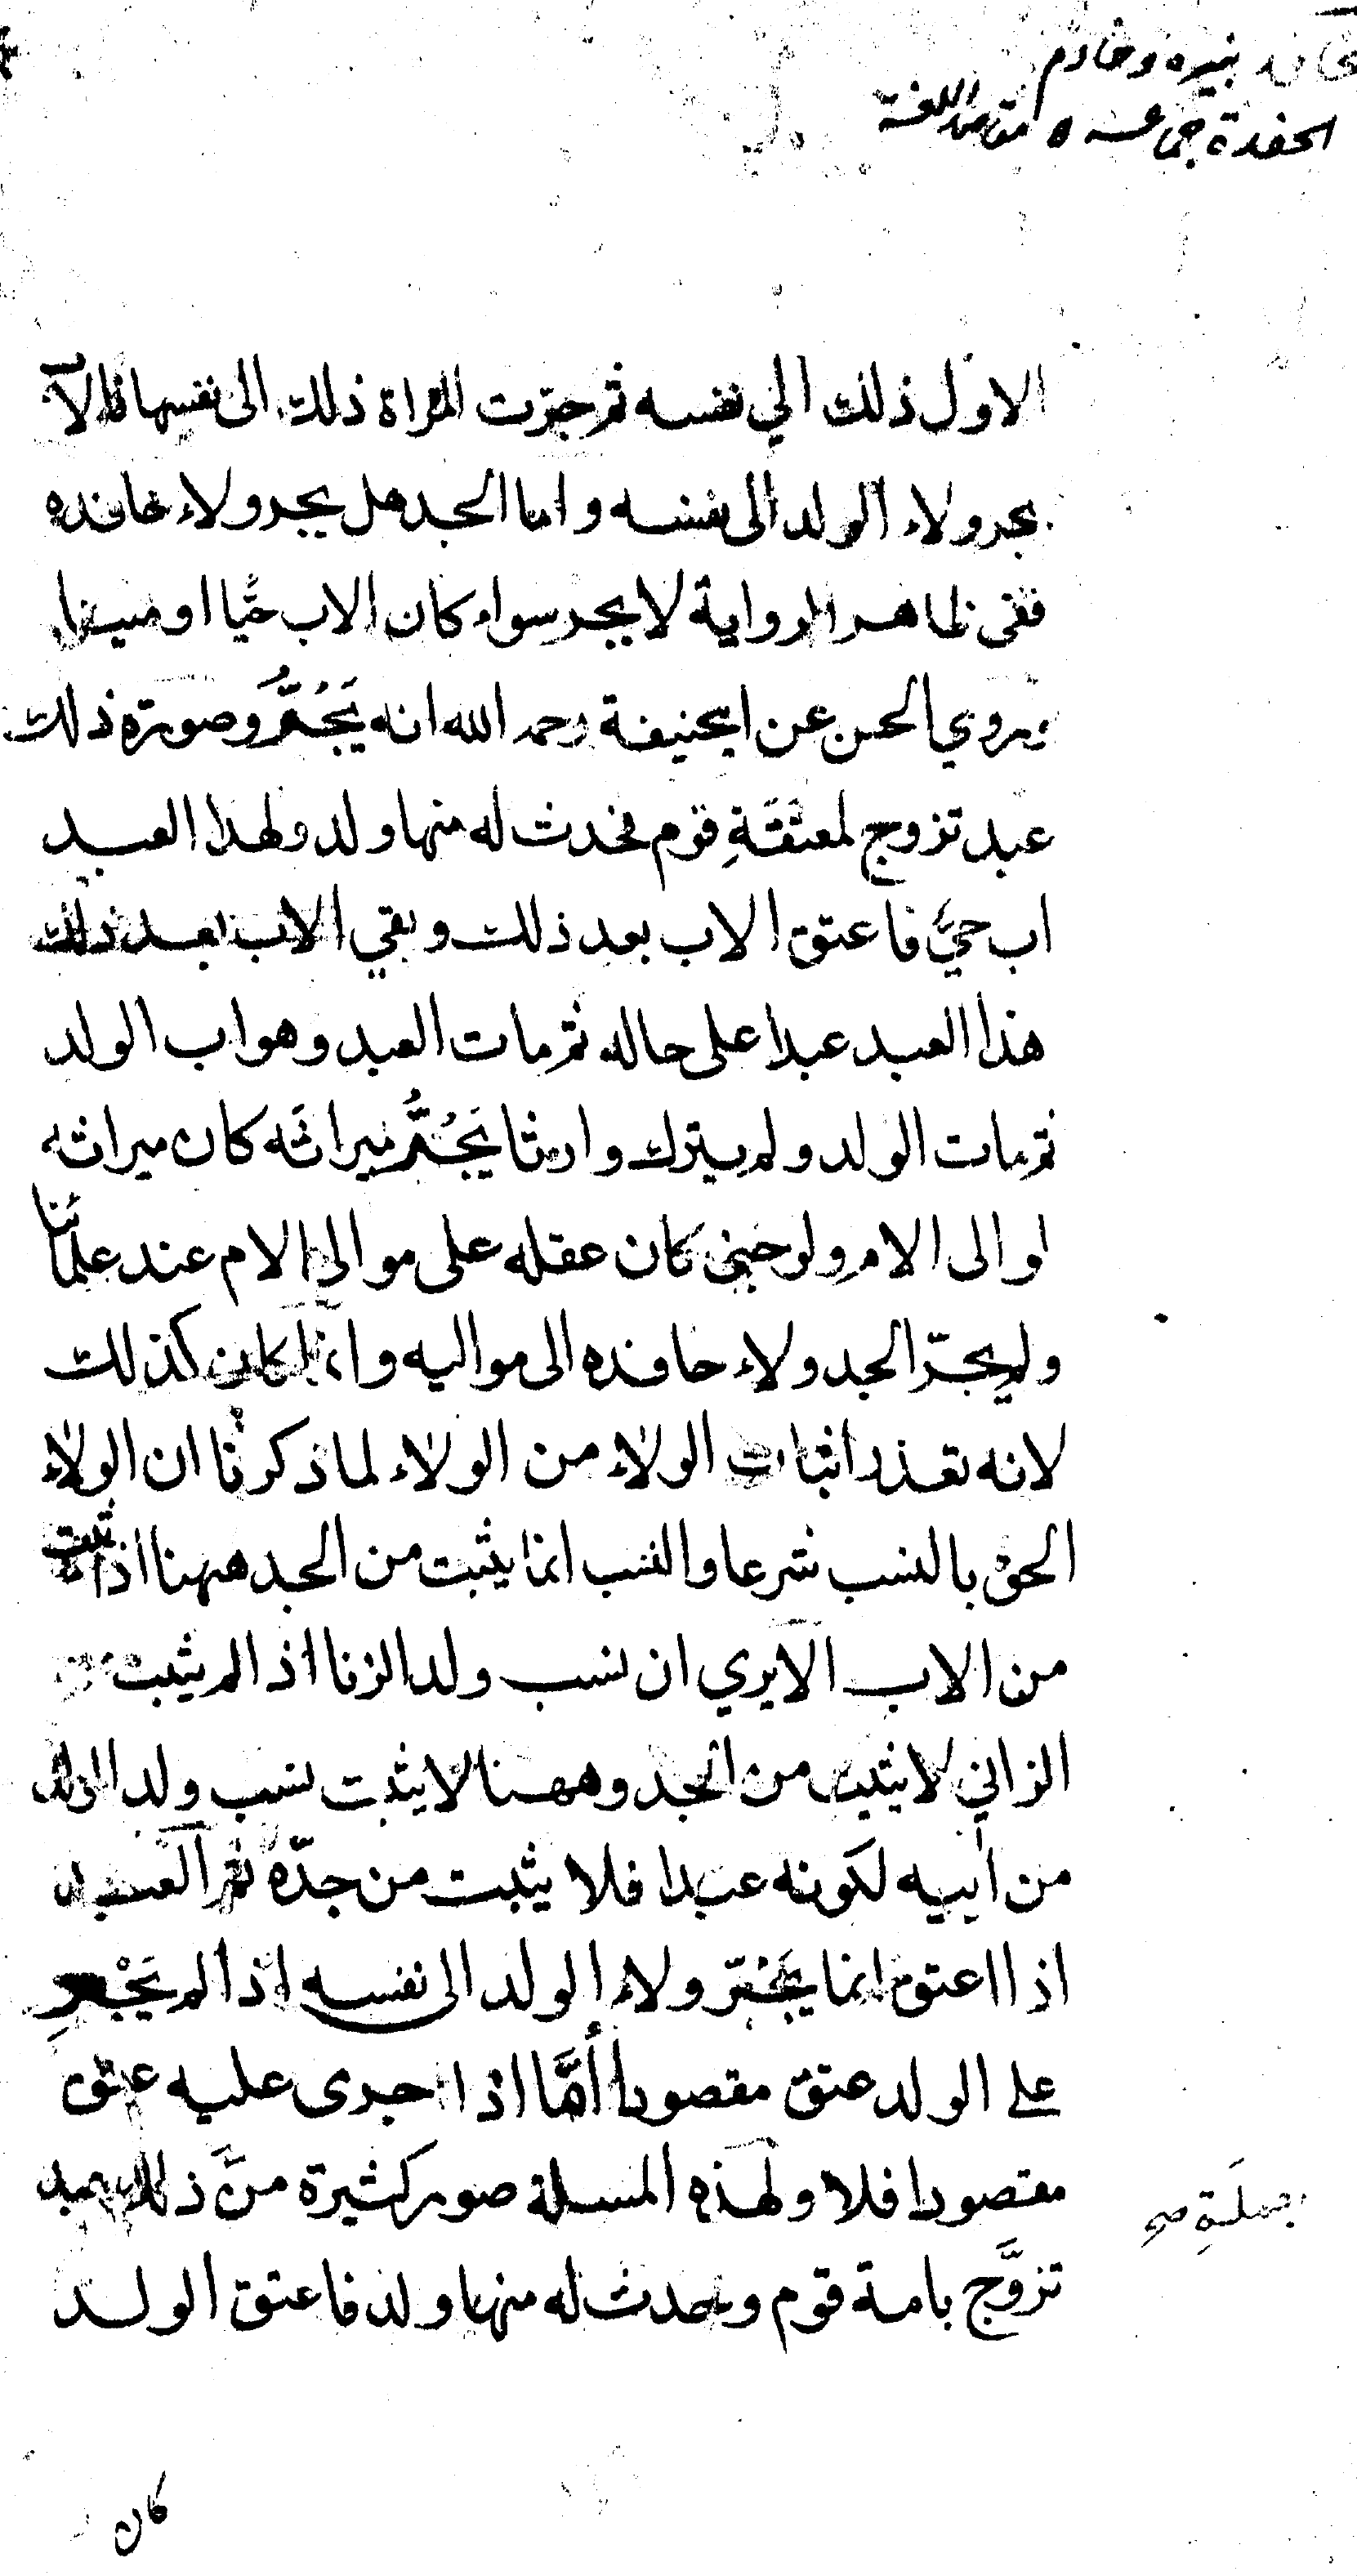 نبيره وخادم
الحفدة جماعة ٥ مقاصد اللغة
الاول ذلك الي نفسه ثم جرّت المراة ذلك الى نفسها فالاب
يجر ولاء الولد الى نفسه واما الجد هل يجر ولاء حافده
ففى ظاهر الرواية لا يجر سواء كان الاب حيًّا او ميتا
وروي الحسن عن ابيحنيفة رحمه الله انه يَجُرُّ وصورة ذلك
عبد تزوج لمعتَقَةِ قوم فحدث له منها ولد ولهذا العبد
اب حيٌّ فاعتق الاب بعد ذلك وبقي الاب بعد ذلك
هذا العبد عبدا على حاله ثم مات العبد وهو اب الولد
ثم مات الولد ولم يترك وارثا يَجُرُّ ميراثَه كان ميراثه
لوالى الام ولو جنى كان عقله على موالى الام عند علمائنا
ولم يجرّ الجد ولاء حافده الى مواليه وانما كان كذلك
لانه تعذر اثبات الولاء من الولاء لما ذكرنا ان الولاء
الحق بالنسب شرعا والنسب انما يثبت من الجد ههنا اذا ثبت
من الاب الا يري ان نسب ولد الزنا اذا لم يثبت من
الزاني لا يثبت من الجد وههنا لا يثبت نسب ولد الولد
من ابيه لكونه عبدا فلا يثبت من جدّه ثم العبد
اذا اعتق انما يَجُرّ ولاء الولد الى نفسه اذا لم يَجْرِ
على الولد عتق مقصودا أمَّا اذا جرى عليه عتق
مقصودا فلا ولهذه المسلة صور كثيرة منَ ذلك عبد
بجملَةِ صح
تزوَّج بامة قوم وحدث له منها ولد فاعتق الولد
كان